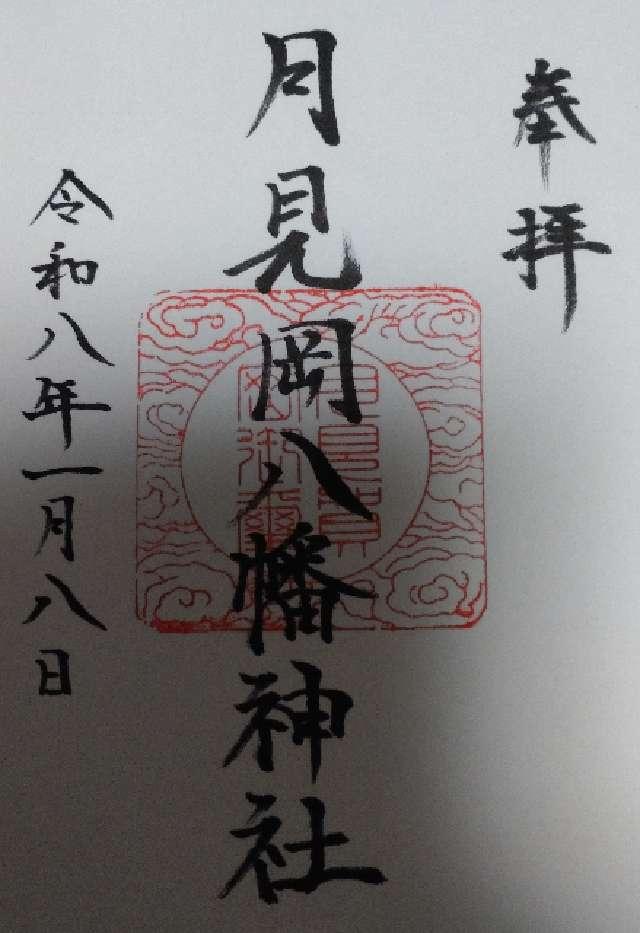 奉拝
月見岡八幡神社
令和八年一月八日